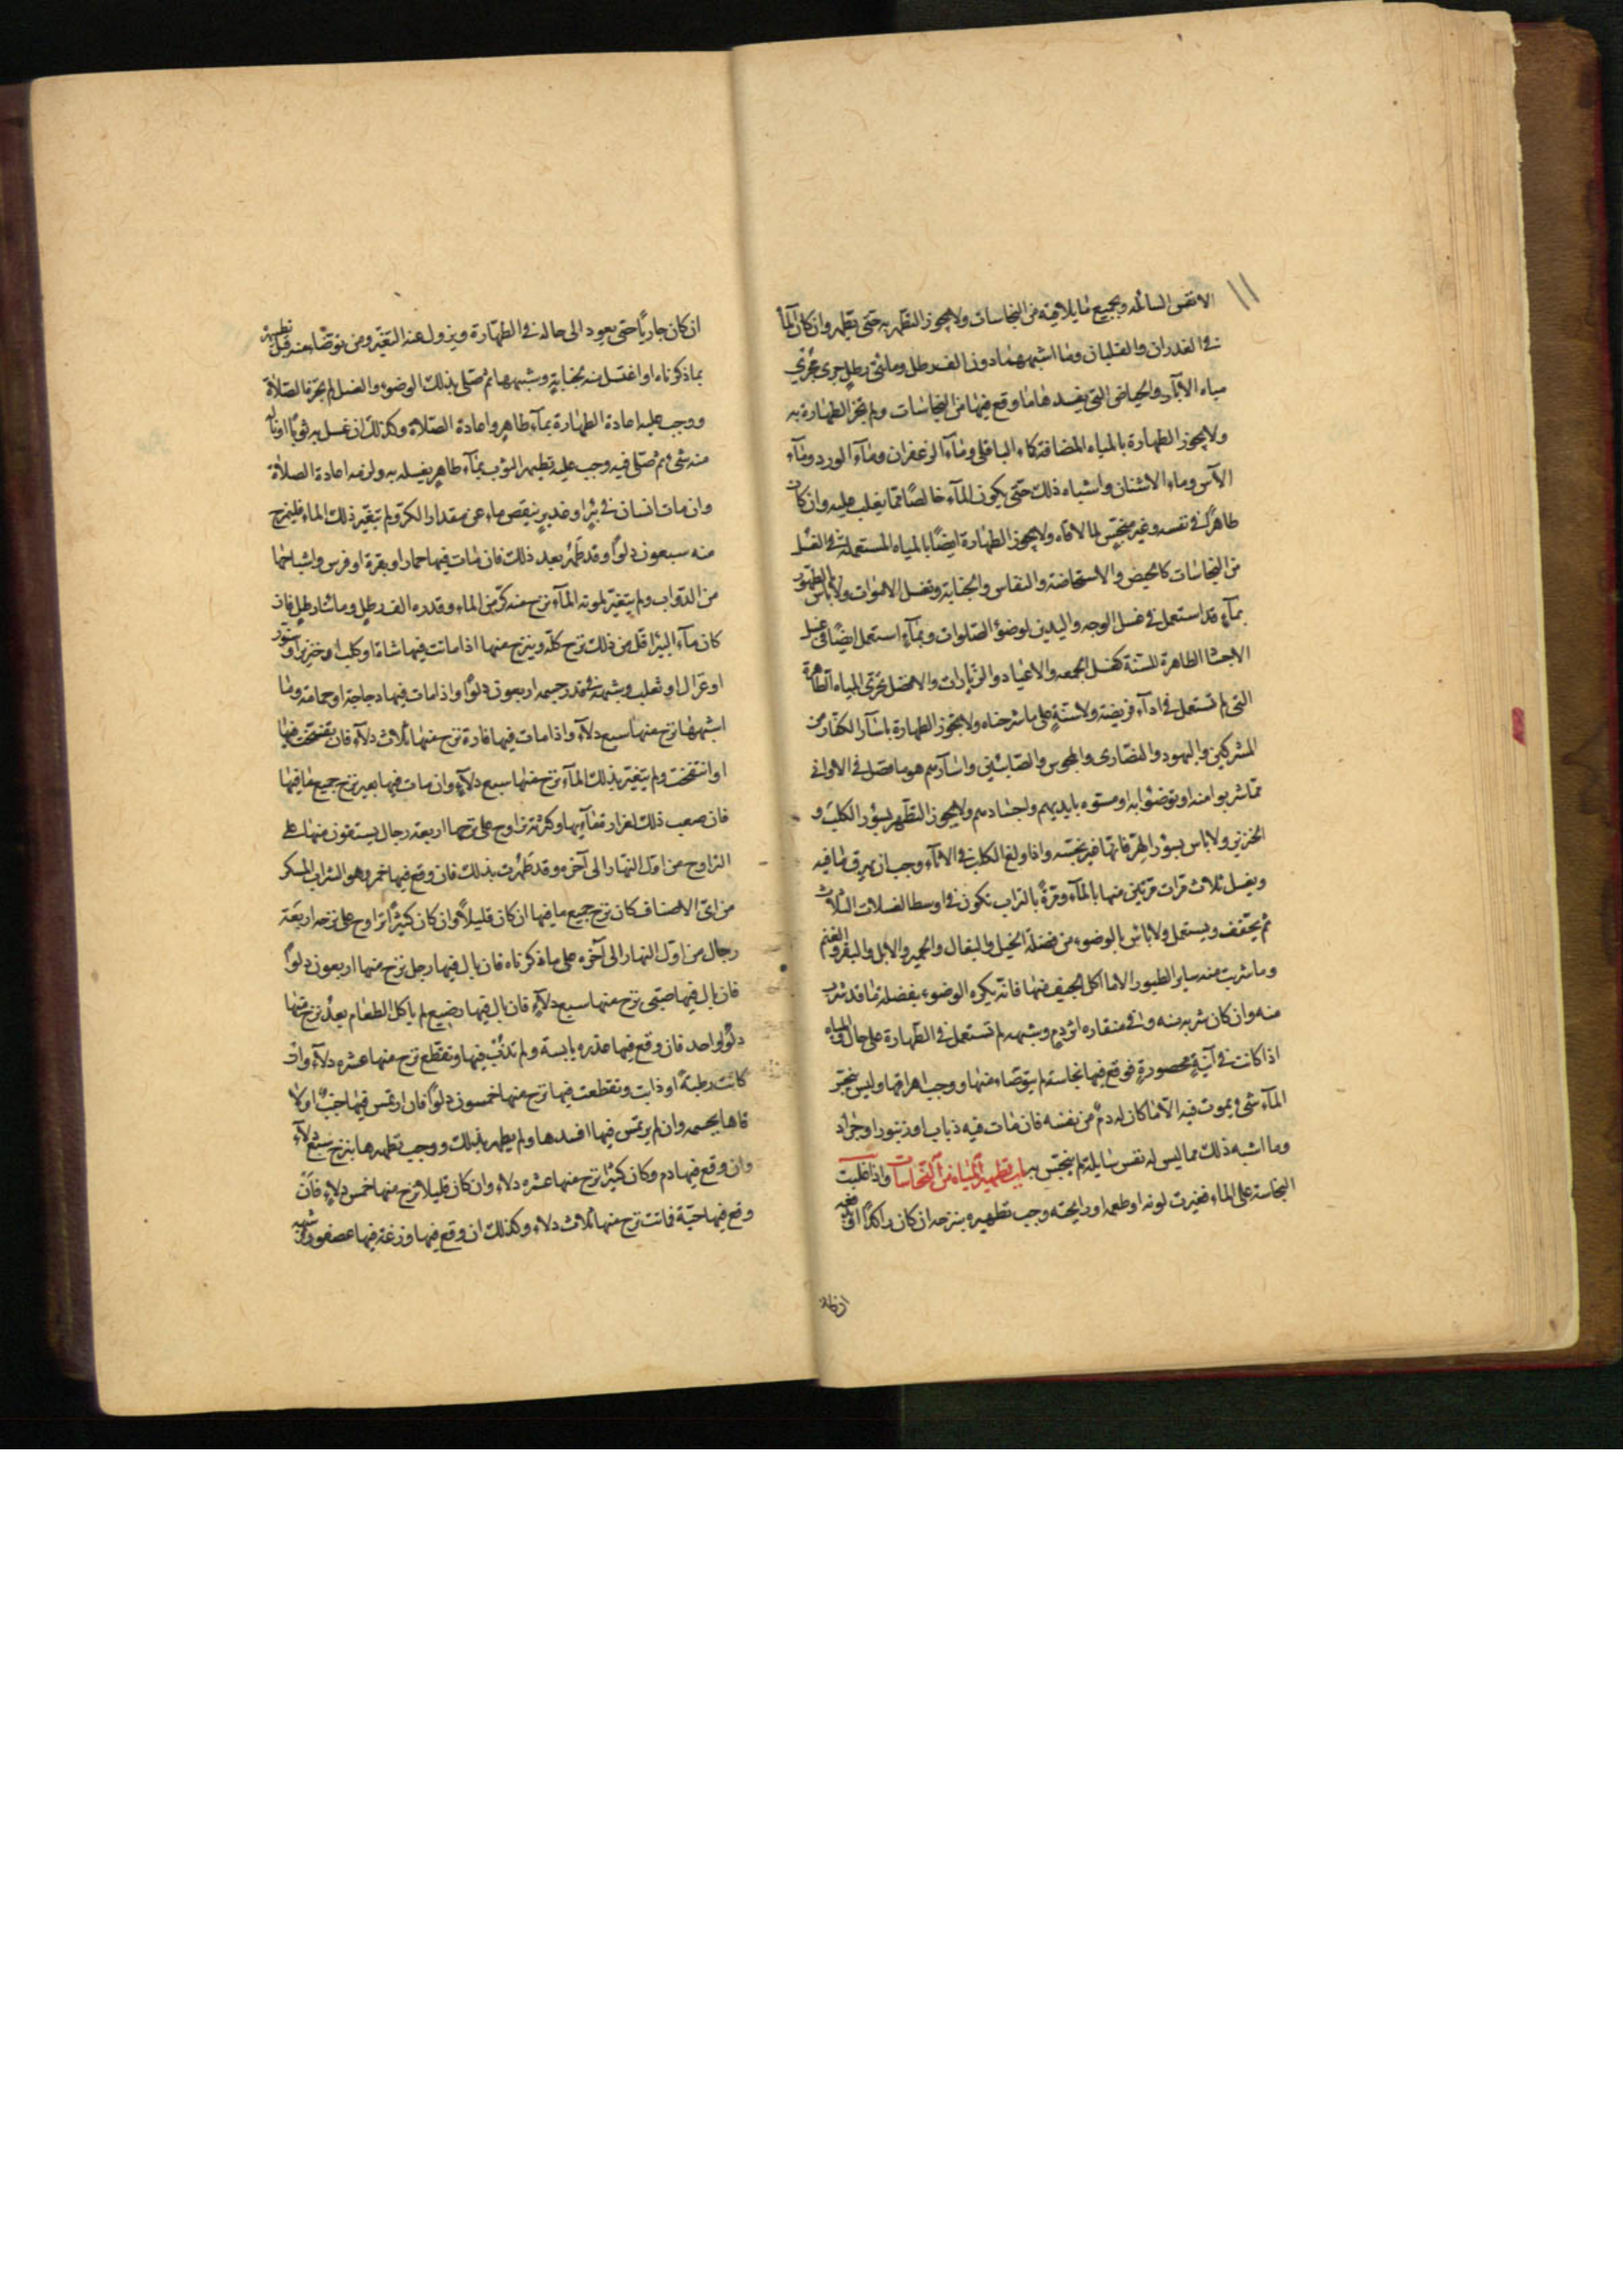 ١١
الانفس السائله وبجميع ما يلاقيه من النجاسات ولا يجوز التطهر به حتى يطهر وان كان الماء
في الغدران والقلبان وما اشبههما دون الف رطل ومائتي رطل جرى مجرى
مياه الآبار والحياض التي يفسدها ما وقع فيها من النجاسات ولم تجز الطهارة به
ولا يجوز الطهارة بالمياه المضافة كماء الباقلى وماء الزعفران وماء الورد وماء
الآس وماء الاشنان واشباه ذلك حتى يكون الماء خالصا مما يغلب عليه وان كان
طاهرا في نفسه وغير منجس لما لاقاه ولا يجوز الطهارة ايضا بالمياه المستعملة في الغسل
من النجاسات كالحيض والاستحاضة والنفاس والجنابة وتغسل الاموات ولا باس بالطهور
بماء قد استعمل في غسل الوجه واليدين لوضوء الصلوات وبماء استعمل ايضا في غسل
الاجساد الطاهرة للسنة كغسل الجمعه والاعياد والزيارات والافضل تحرى المياه الطاهرة
التي لم تستعمل في اداء فريضة ولا سنة على ما شرحناه ولا يجوز الطهارة باسآر الكفار من
المشركين واليهود والنصارى والمجوس والصابئين واسآرهم هو ما فضل في الاواني
مما شربوا منه او توضئوا به او مسوه بايديهم واجسادهم ولا يجوز التطهر بسؤر الكلب و
الخنزير ولا باس بسؤر الهر فانها غير نجسه واذا ولغ الكلب في الاناء وجب ان يهرق ما فيه
ويغسل ثلاث مرات مرتين منها بالماء ومرة بالتراب تكون في اوسط الغسلات الثلاث
ثم يجفف ويستعمل ولا باس بالوضوء من فضلة الخيل والبغال والحمير والابل والبقر والغنم
وما شربت منه ساير الطيور الا ما اكل الجيف منها فانه يكره الوضوء بفضلة ما قد شرب
منه وان كان شربه منه وفي منقاره اثر دم وشبهه لم تستعمل في الطهارة على حال والمياه
اذا كانت في آنية محصورة فوقع فيها نجاسة لم يتوضاء منها ووجب اهراقها وليس ينجس
الماء شيء يموت فيه الا ما كان له دم من نفسه فان مات فيه ذباب او زنبور او جراد
وما اشبه ذلك مما ليس له نفس سايلة لم ينجس به باب تطهير المياه من النجاسات واذا غلبت
النجاسة على الماء فغيرت لونه او طعمه او رايحته وجب تطهيره بنزحه ان كان راكدا
ان كان
ان كان جاريا حتى يعود الى حاله في الطهارة ويزول عنه التغير ومن توضأ منه قبل تطهيره
بما ذكرناه او اغتسل منه لجنابة وشبهها ثم صلى بذلك الوضوء والغسل لم تجزه الصلاة
ووجب عليه اعادة الطهارة بماء طاهر واعادة الصلاة وكذلك ان غسل به ثوبا او ناله
منه شيء ثم صلى فيه وجب عليه تطهير الثوب بماء طاهر يغسله به ولزمه اعادة الصلاة
وان مات انسان في بئر او غدير ينقص ماءه عن مقدار الكر ولم يتغير ذلك الماء فلينزح
منه سبعون دلوا وقد طهر بعد ذلك فان مات فيها حمار او بقرة او فرس واشباهها
من الدواب ولم يتغير لموته الماء نزح منه كر من الماء وقدره الف رطل ومائتا رطل فان
كان ماء البئر اقل من ذلك نزح كله وينزح منها اذا ماتت فيها شاة او كلب او خنزير او سنور
او غزال او ثعلب وشبهه في قدر جسمه اربعون دلوا واذا مات فيها دجاجة او حمامة وما
اشبهها نزح منها سبع دلاء واذا مات فيها فارة نزح منها ثلاث دلاء فان تفسخت فيها
او انتفخت ولم يتغير بذلك الماء نزح منها سبع دلاء وان مات فيها بعير نزح جميع ما فيها
فان صعب ذلك لغزارة مائها وكثرته تراوح على نزحها اربعة رجال يستقون منها على
التراوح من اول النهار الى آخره وقد طهرت بذلك فان وقع فيها خمر وهو الشراب المسكر
من اي الاصناف كان نزح جميع ما فيها ان كان قليلا وان كان كثيرا تراوح على نزحه اربعة
رجال من اول النهار الى آخره على ما ذكرناه فان بال فيها رجل نزح منها اربعون دلوا
فان بال فيها صبي نزح منها سبع دلاء فان بال فيها رضيع لم ياكل الطعام بعد نزح منها
دلو واحد فان وقع فيها عذرة يابسة ولم تذب فيها وتقطع نزح منها عشره دلاء وان
كانت رطبة او ذابت وتقطعت فيها نزح منها خمسون دلوا فان ارتمس فيها جنب او
لاقاها بجسمه وان لم يرتمس فيها افسدها ولم يطهر بذلك ووجب تطهيرها بنزح سبع دلاء
وان وقع فيها دم وكان كثيرا نزح منها عشره دلاء وان كان قليلا نزح منها خمس دلاء فان
وقع فيها حية فماتت نزح منها ثلاث دلاء وكذلك ان وقع فيها وزغة فيها عصفور وشبهه